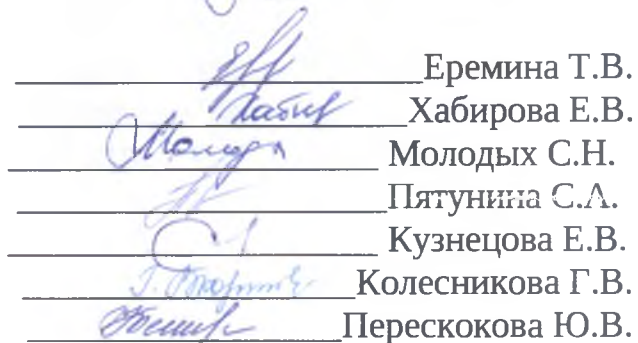 Еремина Т.В.
Хабирова Е.В.
Молодых С.Н.
Пятунина С.А.
Кузнецова Е.В.
Колесникова Г.В.
Перескокова Ю.В.